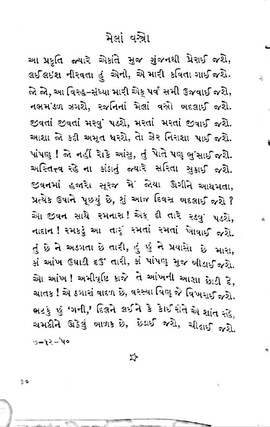 મેલાં વસ્ત્રો
આ પ્રકૃતિ જ્યારે એકાંતે મુજ ગુંજનથી પ્રેરાઈ જશે,
લઈ લઇશ નીરવતા હું એની, એ મારી કવિતા ગાઈ જશે.
જો જો, આ વિરહ-સંધ્યા મારી એક પર્વ સમી ઉજવાઈ જશે,
નભમંડળ ઝગશે, રજનિનાં મેલાં વસ્ત્રો બદલાઈ જશે.
જીવતાં જીવતાં મરવું પડશે, મરતાં મરતાં જીવાઈ જશે.
આશા જો કદી અમૃત ધરશે, તો ઝેર નિરાશા પાઈ જશે.
પાંપણ! જો નહીં રોકે આંસુ, તું પોતે પણ ભુંસાઈ જશે,
અસ્તિત્વ રહે ના કાંઠાનું જ્યારે સરિતા સુકાઈ જશે.
જીવનમાં હજારો સૂરજ મેં જોયા ઊગીને આથમતા,
પ્રત્યેક ઉષાને પૂછ્યું છે, શું આજ દિવસ બદલાઈ જશે?
ઓ જીવન સાથે રમનારા! એક દી તારે રડવું પડશે,
નાદાન! રમકડું આ તારું રમતાં રમતાં ખોવાઈ જશે.
તું છે ને અડગતા છે તારી, હું છું ને પ્રવાસો છે મારા,
કાં આંખ ઉઘાડી દઉં તારી, કાં પાંપણ મુજ બીડાઈ જશે.
ઓ આંખ! અમીવૃષ્ટિ કાજે તે આંખની આશા છોડી દે,
ચાતક! એ ઠગારાં વાદળ છે, વરસ્યા વિણ જે વિખરાઈ જશે.
ભટકું છું 'ગની,' દિલને લઈને કે કોઈ રીતે એ શાંત રહે,
ચમકીને ઊઠેલું બાળક છે, છેડાઈ જશે, ચીઢાઈ જશે.
૭-૧૨-૫૦
૩૦